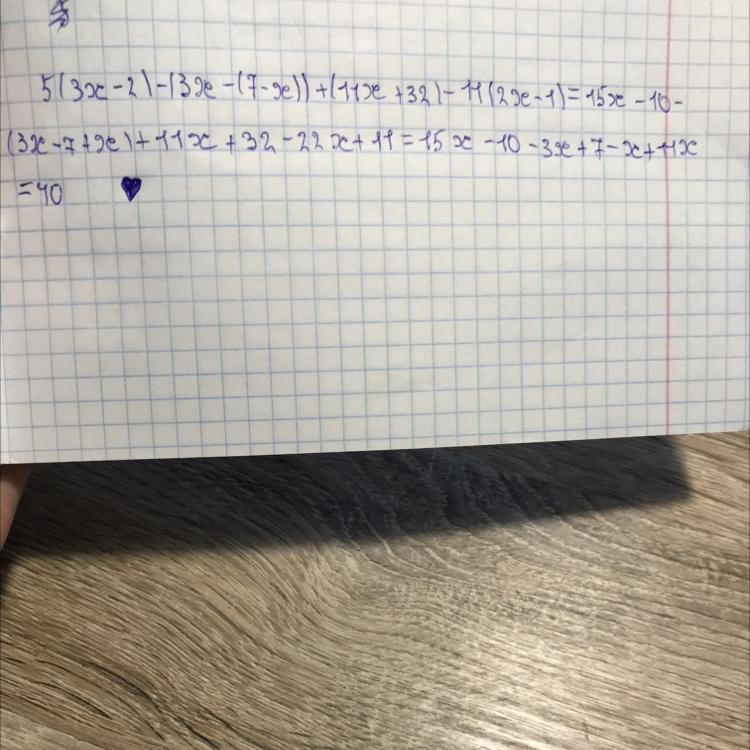 5(3x-2)-(3x-(7-x))+(11x+32)-11(2x-1)=15x-10-
(3x-7+x)+11x+32-22x+11=15x-10-3x+7-x+11x
=40